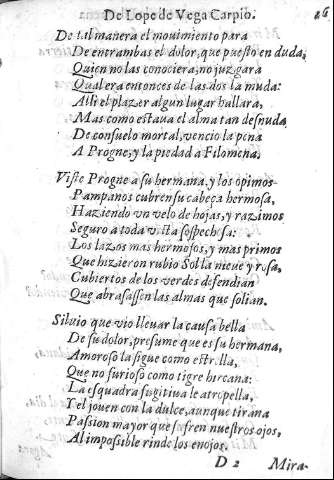 De Lope de Vega Carpio. 26
De tal manera el mouimiento para
De entrambas el dolor, que puesto en duda,
Quien no las conociera, no juzgara
Qual era entonces de las dos la muda:
Alli el plazer algun lugar hallara,
Mas como estaua el alma tan desnuda
De consuelo mortal, vencio la pena
A Progne, y la piedad a Filomena.
Viste Progne a su hermana, y los opimos
Pampanos cubren su cabeça hermosa,
Haziendo vn velo de hojas, y razimos
Seguro a toda vista sospechosa:
Los lazos mas hermosos, y mas primos
Que hizieron rubio Sol la nieue y rosa,
Cubiertos de los verdes defendian
Que abrasassen las almas que solian.
Siluio que vio lleuar la causa bella
De su dolor, presume que es su hermana,
Amoroso la sigue como estrella,
Que no furioso como tigre hircana:
La esquadra fugitiua le atropella,
Y el jouen con la dulce, aunque tirana
Passion mayor que sufren nuestros ojos,
Al impossible rinde los enojos.
D 2 Mira-